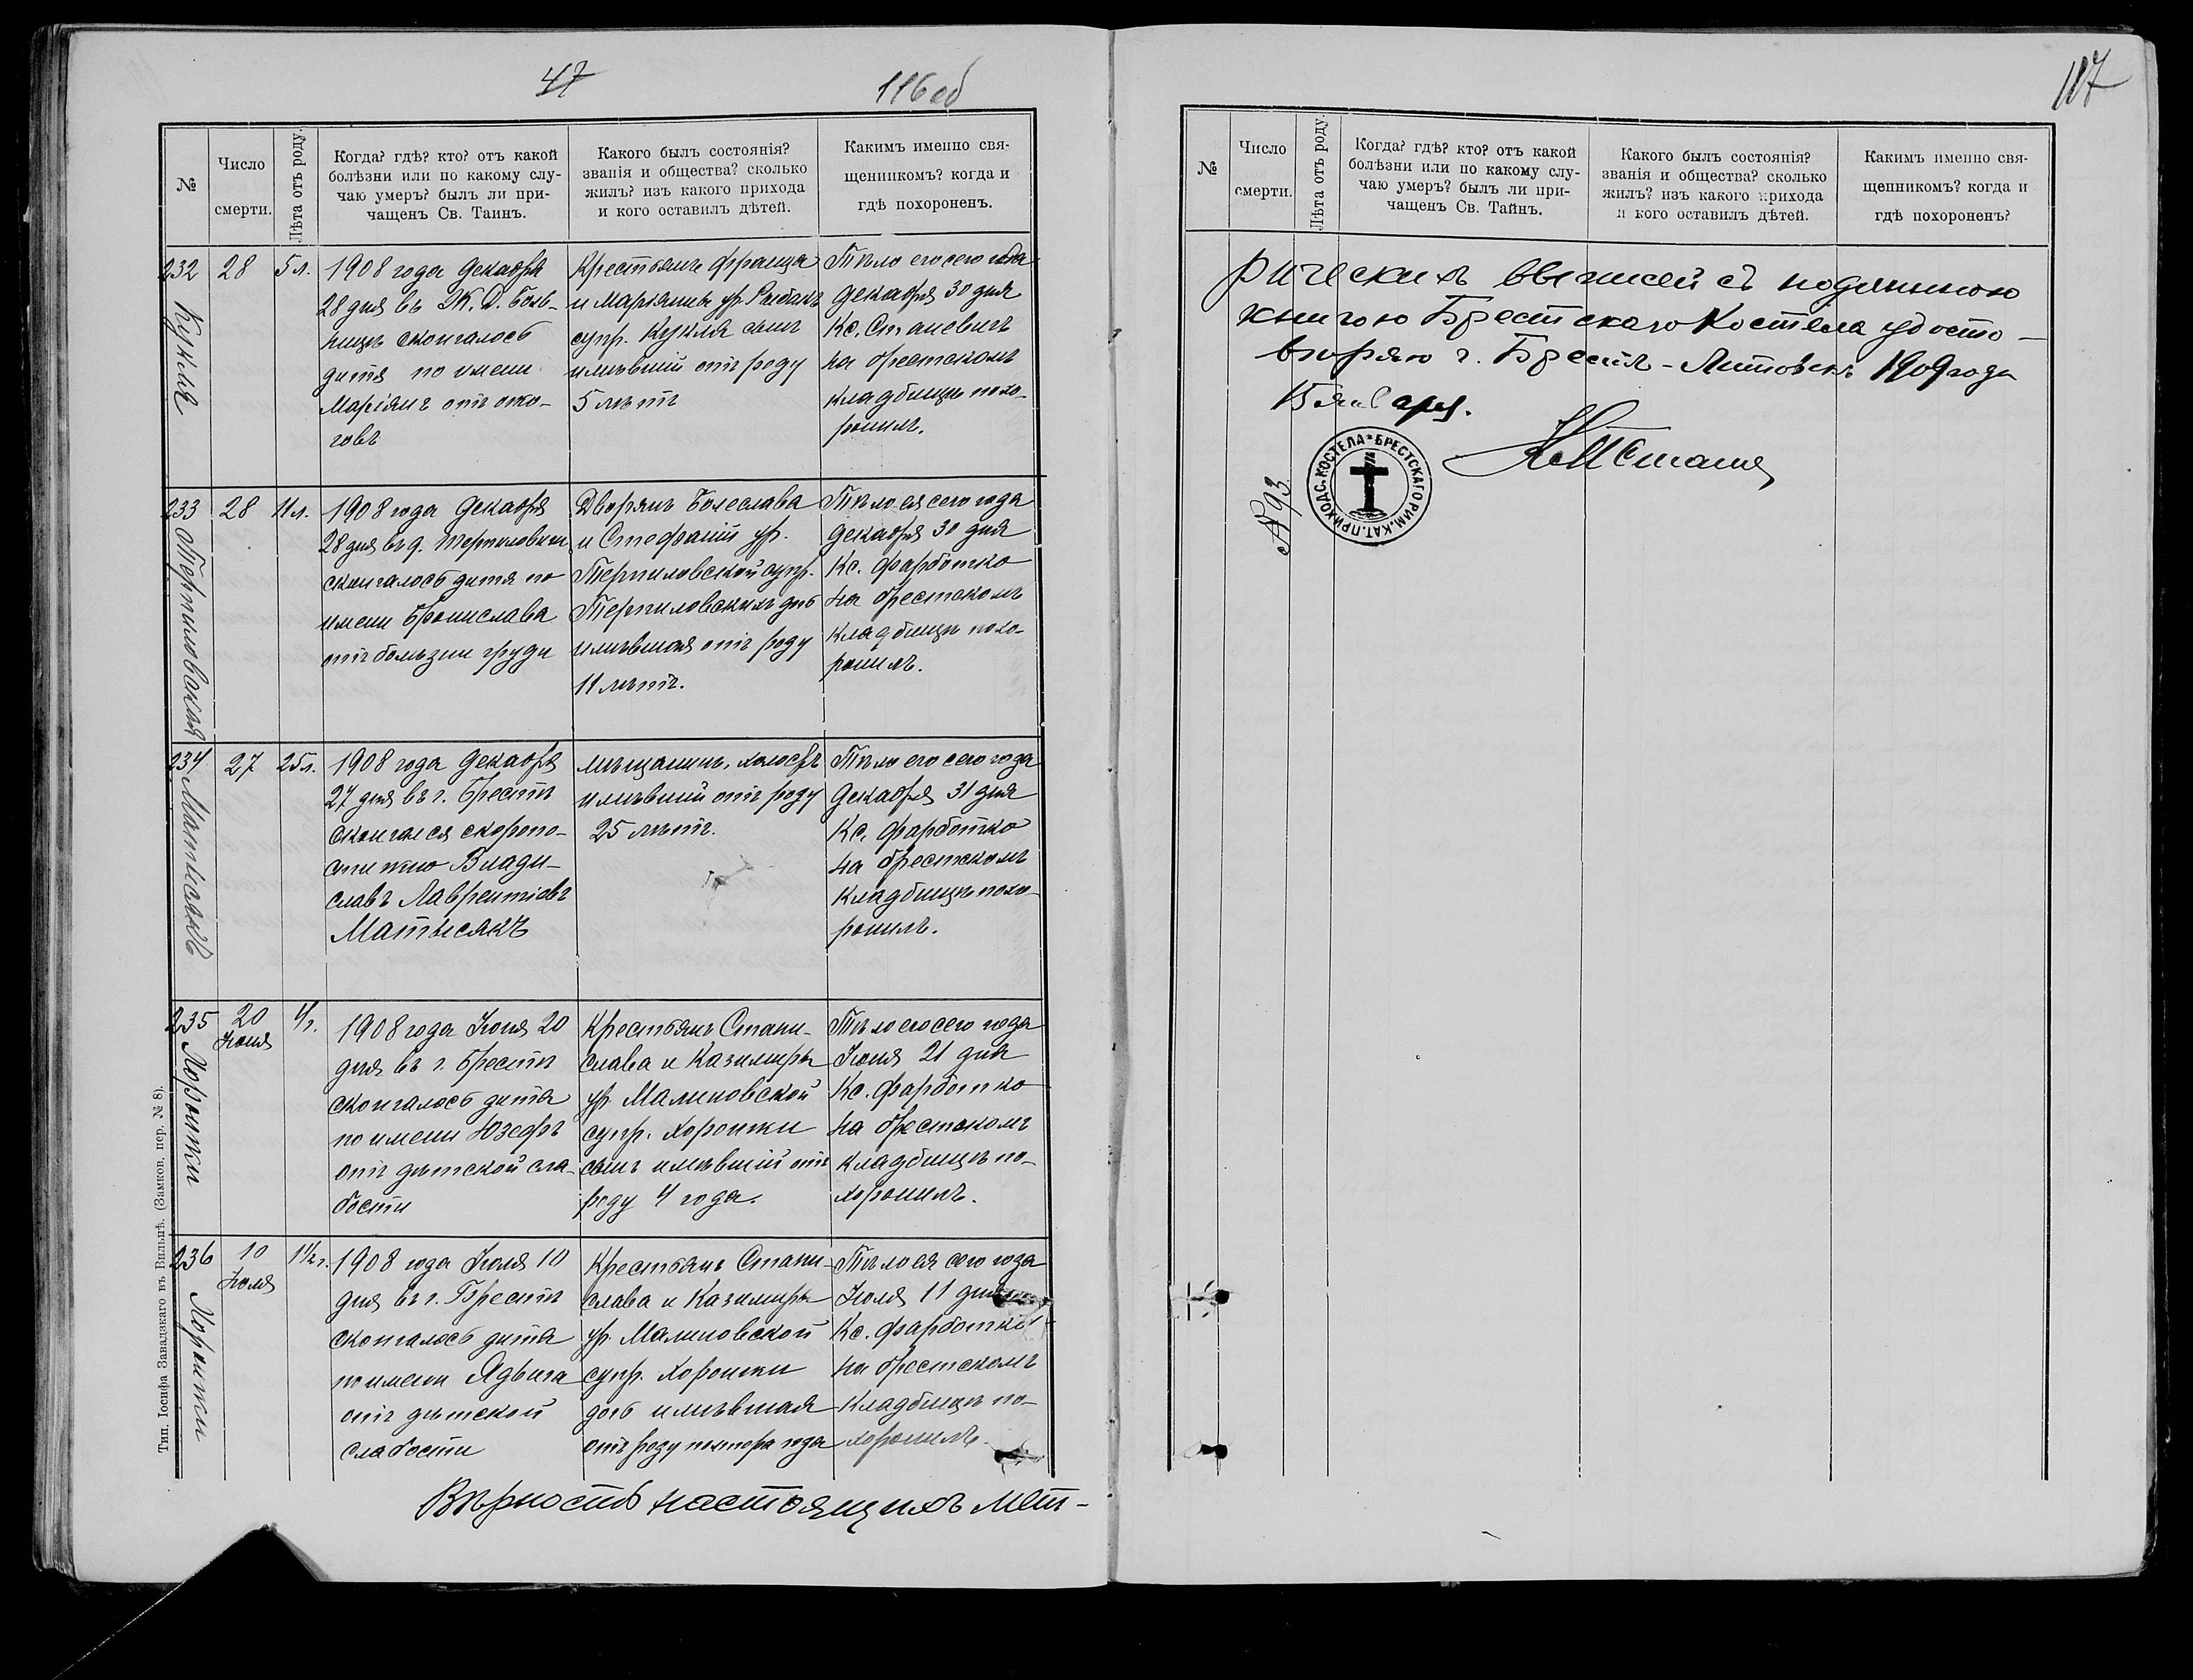 47
116 об
№
Число
смерти.
Лѣта отъ роду.
Когда? гдѣ? кто? отъ какой
болѣзни или по какому слу-
чаю умеръ? былъ ли при-
чащенъ Св. Таинъ.
Какого былъ состоянія?
званія и общества? сколько
жилъ? изъ какого прихода
и кого оставилъ дѣтей.
Какимъ именно свя-
щенникомъ? когда и
гдѣ похороненъ.
232
Кукля
28
5 л.
1908 года Декабря
28 дня въ Ж. Д. Боль-
ницѣ скончалось
дитя по имени
Маріянъ отъ ожо-
говъ
Крестьянъ Франца
и Маріянны ур. Рыбакъ
супр. Кукля сынъ
имѣвшій отъ роду
5 лѣтъ
Тѣло его сего года
Декабря 30 дня
Кс. Станевичъ
на брестскомъ
кладбищѣ похо-
ронилъ.
233
Терпиловская
28
11 л.
1908 года Декабря
28 дня въ д. Терпиловичи
скончалось дитя по
имени Бронислава
отъ болѣзни груди
Дворянъ Болеслава
и Стефаніи ур.
Терпиловской супр.
Терпиловскихъ дочь
имѣвшая отъ роду
11 лѣтъ.
Тѣло ея сего года
Декабря 30 дня
Кс. Фарботко
на брестскомъ
кладбищѣ похо-
ронилъ.
234
Матысякъ
27
25 л.
1908 года Декабря
27 дня въ г. Брестѣ
скончался скоропо-
стижно Влади-
славъ Лаврентіевъ
Матысякъ
Мѣщанинъ, холостъ
имѣвшій отъ роду
25 лѣтъ.
Тѣло его сего года
Декабря 31 дня
Кс. Фарботко
на брестскомъ
кладбищѣ похо-
ронилъ.
235
Хоронжи
20
Іюня
4 г.
1908 года Іюня 20
дня въ г. Брестѣ
скончалось дитя
по имени Юзефъ
отъ дѣтской сла-
бости
Крестьянъ Стани-
слава и Казимиры
ур. Малиновской
супр. Хоронжи
сынъ имѣвшій отъ
роду 4 года.
Тѣло его сего года
Іюня 21 дня
Кс. Фарботко
на брестскомъ
кладбищѣ по-
хоронилъ.
236
Хоронжи
10
Іюля
1 1/2 г.
1908 года Іюля 10
дня въ г. Брестѣ
скончалось дитя
по имени Ядвига
отъ дѣтской
слабости
Крестьянъ Стани-
слава и Казимиры
ур. Малиновской
супр. Хоронжи
дочь имѣвшая
отъ роду полтора года
Тѣло ея сего года
Іюля 11 дня
Кс. Фарботко
на брестскомъ
кладбищѣ по-
хоронилъ.
Вѣрность настоящихъ мет-
Тип. Іосифа Завадзкаго въ Вильнѣ. (Замков. пер. № 8).
117
№
Число
смерти.
Лѣта отъ роду.
Когда? гдѣ? кто? отъ какой
болѣзни или по какому слу-
чаю умеръ? былъ ли при-
чащенъ Св. Тайнъ.
Какого былъ состоянія?
званія и общества? сколько
жилъ? изъ какого прихода
и кого оставилъ дѣтей.
Какимъ именно свя-
щенникомъ? когда и
гдѣ похороненъ?
рическихъ выписей съ подлинною
книгою Брестскаго Костела удосто-
вѣряю г. Брестъ-Литовскъ 1909 года
15 января.
№ 93
БРЕСТСКАГО РИМ. КАТ. ПРИХОДС. КОСТЕЛА